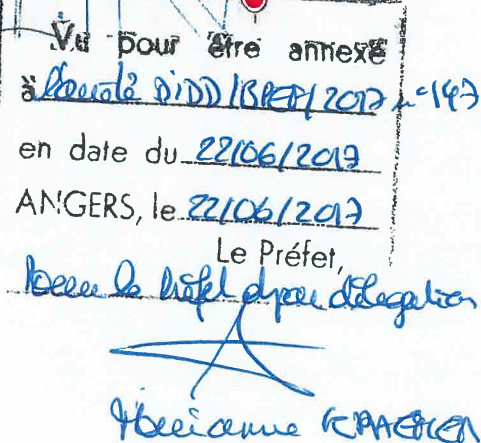 Vu pour être annexé
à l'arrêté DIDD/BPEF/2017 n°147
en date du 22/06/2017
ANGERS, le 22/06/2017
Le Préfet,
Pour le Préfet et par délégation